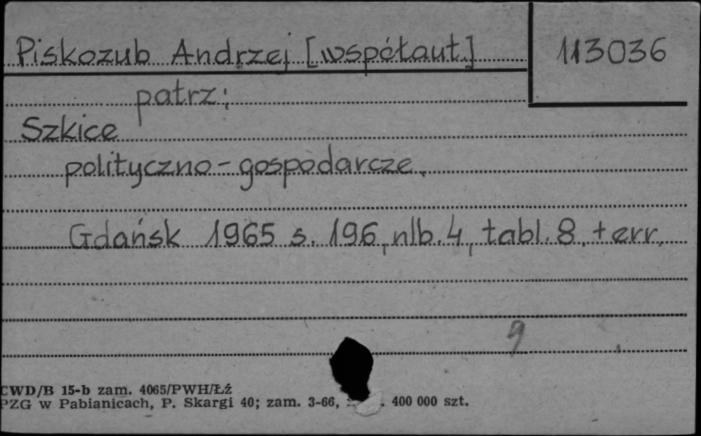 Piskozub Andrzej [współaut.] 113036
patrz:
Szkice
polityczno-gospodarcze.
Gdańsk 1965 s. 196, nlb. 4, tabl. 8, + err.
9
CWD/B 15-b zam. 4065/PWH/Łź
PZG w Pabianicach, P. Skargi 40; zam. 3-66, . 400 000 szt.